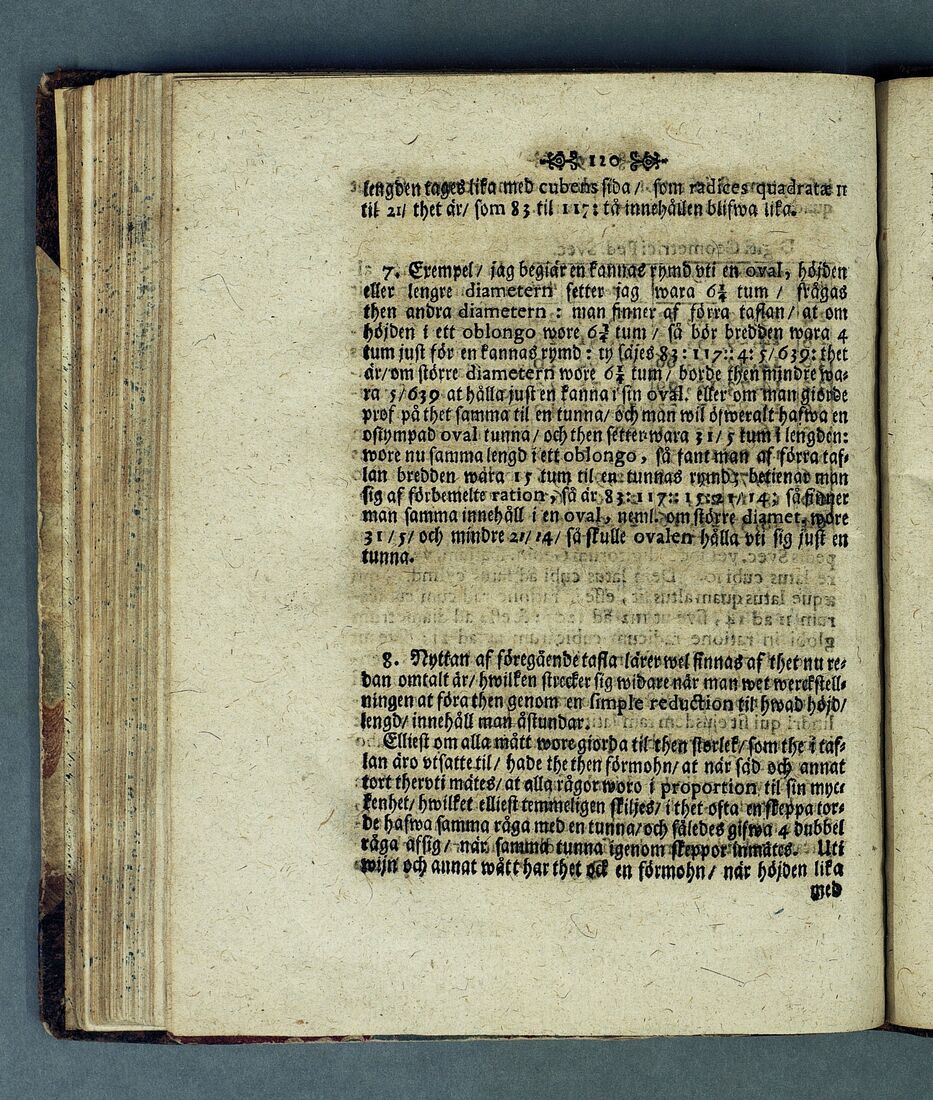 120
lengden tages lika med cubens sida/ som radices quadratæ 11
til 21/ thet är/ som 83 til 117: tå innehållen blifwa lika.
7. Exempel/ jag begiär en kannas rymd vti en oval, höjden
eller lengre diametern setter jag wara 6¾ tum/ frågas
then andra diametern: man finner af förra taflan/ at om
höjden i ett oblongo wore 6¾ tum/ så bör bredden wara 4
tum just för en kannas rymd: ty säjes 83: 117:: 4: 5/639: thet
är/ om större diametern wore 6¾ tum/ borde then mindre wa-
ra 5/639 at hålla just en kanna i sin oval. eller om man giorde
prof på thet samma til en tunna/ och man wil öfweralt hafwa en
oflympad oval tunna/ och then setter wara 31/5 tum i lengden:
wore nu samma lengd i ett oblongo, så fant man af förra taf-
lan bredden wara 15 tum til en tunnas rymd; betienar man
sig af förbemelte ration, så är 83: 117:: 15: 21/14: så finner
man samma innehåll i en oval, neml. om större diamet. wore
31/5/ och mindre 21/14/ så skulle ovalen hålla vti sig just en
tunna.
8. Nyttan af föregående tafla lärer wel finnas af thet nu re-
dan omtalt är/ hwilken strecker sig widare när man wet werckstell-
ningen at föra then genom en simple reduction til hwad höjd/
lengd/ innehåll man åstundar.
Elliest om alla mått wore giorda til then storlek/ som the i taf-
lan äro vtsatte til/ hade the then förmohn/ at när säd och annat
tort thervti mätes/ at alla rågor woro i proportion til sin myc-
kenhet/ hwilket elliest temmeligen skiljes/ i thet ofta en skeppa tor-
de hafwa samma råga med en tunna/ och således gifwa 4 dubbel
råga affig/ när samma tunna igenom skeppor inmätes. Uti
wijn och annat wått har thet ock en förmohn/ när höjden lika
med